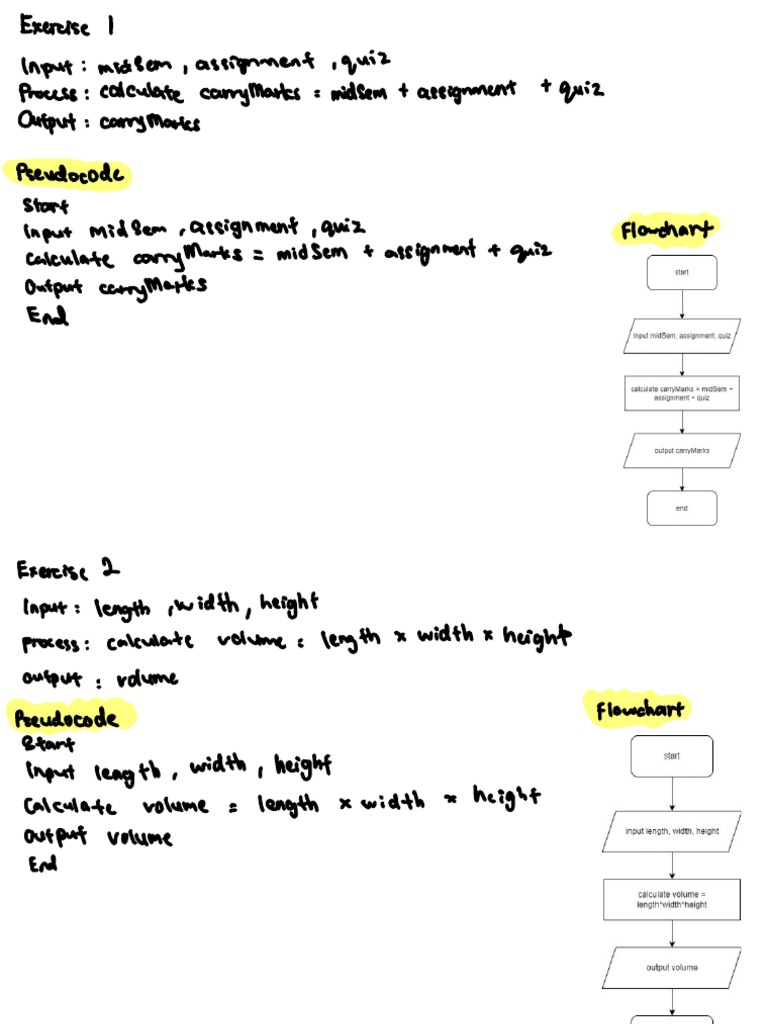 Exercise 1
Input : midSem , assignment , quiz
Process : calculate carryMarks = midSem + assignment + quiz
Output : carryMarks
Pseudocode
Start
Input midSem , assignment , quiz
Calculate carryMarks = midSem + assignment + quiz
Output carryMarks
End
Flowchart
start
input midSem, assignment, quiz
calculate carryMarks = midSem +
assignment + quiz
output carryMarks
end
Exercise 2
Input : length , width , height
process : calculate volume = length x width x height
output : volume
Pseudocode
Start
Input length , width , height
Calculate volume = length x width x height
Output volume
End
Flowchart
start
input length, width, height
calculate volume =
length*width*height
output volume